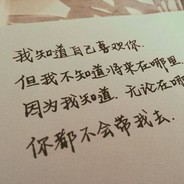 我知道自己喜欢你.
但我不知道将来在哪里.
因为我知道,无论在哪
你都不会带我去.